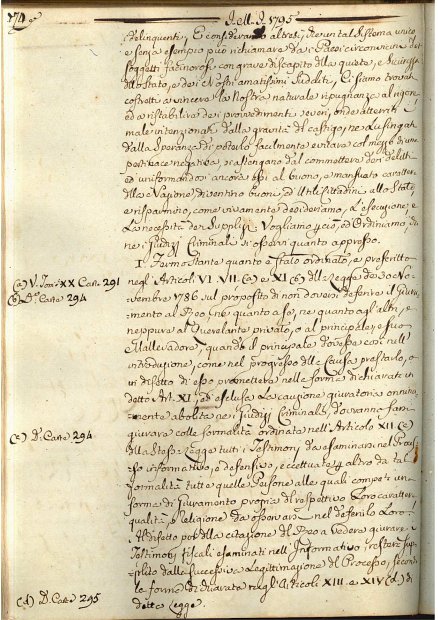 174
Dell' A. 1795
delinquenti, e considerando altresì, che un tal sistema unico,
e senza esempio può richiamare dai Paesi circonvicini dei
soggetti facinorosi con grave discapito della quiete, e sicurezza
dello Stato, e dei Nostri amatissimi Sudditi, Ci siamo trovati
costretti a vincere la Nostra naturale ripugnanza al rigore
ed a ristabilire dei provvedimenti severi, onde atterriti i
male intenzionati dalla gravità del castigo, nè lusingati
dalla speranza di poterlo facilmente evitare col mezzo di una
pertinace negativa, si astengano dal commettere dei delitti
ed uniformandosi ancora essi al buono, e mansueto carattere
della Nazione diventino buoni, ed utili Cittadini allo Stato
e risparmino, come vivamente desideriamo, l'esecuzione, e
la necessità dei supplizj. Vogliamo perciò, ed Ordiniamo, che
nei Giudizj Criminali si osservi quanto appresso.
I. Fermo stante quanto è stato ordinato, e prescritto
negli Articoli VI. VII. (a) e XI (b) della Legge de 30 No-
vembre 1786 sul proposito di non doversi deferire il Giura-
mento al Reo, nè quanto a se, nè quanto agli altri, e
neppure al Querelante privato, o al principale, e suo
Mallevadore, quando il principale dovesse così nell'
introduzione, come nel progresso della Causa prestarlo, o
in difetto di esso prometterà nelle forme dichiarate in
detto Art. XI, ed esclusa la cauzione giuratoria onnina-
mente abolita nei Giudizj Criminali, dovranno farsi
giurare colle formalità ordinate nell'Articolo XII (c)
della stessa Legge tutti i Testimonj da esaminarsi nel Proces-
so informativo, e defensivo, eccettuate però altro da tal
formalità tutte quelle Persone alle quali competi una
forma di Giuramento propria del respettivo loro carattere
qualità, o Religione da osservare nel deferirlo Loro.
Al difetto poi della citazione del Reo a vedere giurare i
Testimonj fiscali esaminati nell'Informativo, resterà sup-
plito dalla successiva Legittimazione del Processo, secondo
la forma divisata negli Articoli XIII. e XIV (d) di
detta Legge.
(a) V. Tom. XX Carte 291
(b) D.o Carte 294
(c) D. Carte 294
(d) D. Carte 295